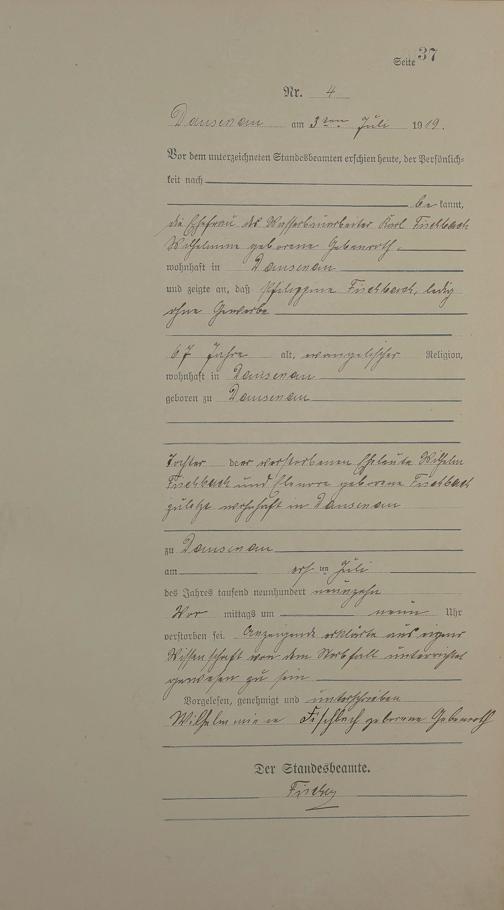 Seite 37
Nr. 4
Dausenau am 3ten Juli 1919.
Vor dem unterzeichneten Standesbeamten erschien heute, der Persönlich-
keit nach
be kannt,
die Ehefrau des Wasserbauarbeiter Karl Fischbach
Wilhelmine geborene Gebenroth.
wohnhaft in Dausenau
und zeigte an, daß Philippine Fischbach, ledig
ohne Gewerbe
67 Jahre alt, evangelischer Religion,
wohnhaft in Dausenau
geboren zu Dausenau
Tochter der verstorbenen Eheleute Wilhelm
Fischbach und Elenore geborene Fischbach
zuletzt wohnhaft in Dausenau
zu Dausenau
am ersten Juli
des Jahres tausend neunhundert neunzehn
Vor mittags um neun Uhr
verstorben sei. Anzeigende erklärte aus eigener
Wissenschaft von dem Sterbfall unterrichtet
gewesen zu sein
Vorgelesen, genehmigt und unterschrieben
Wilhelmmine Fischbach geborene Gebenroth
Der Standesbeamte.